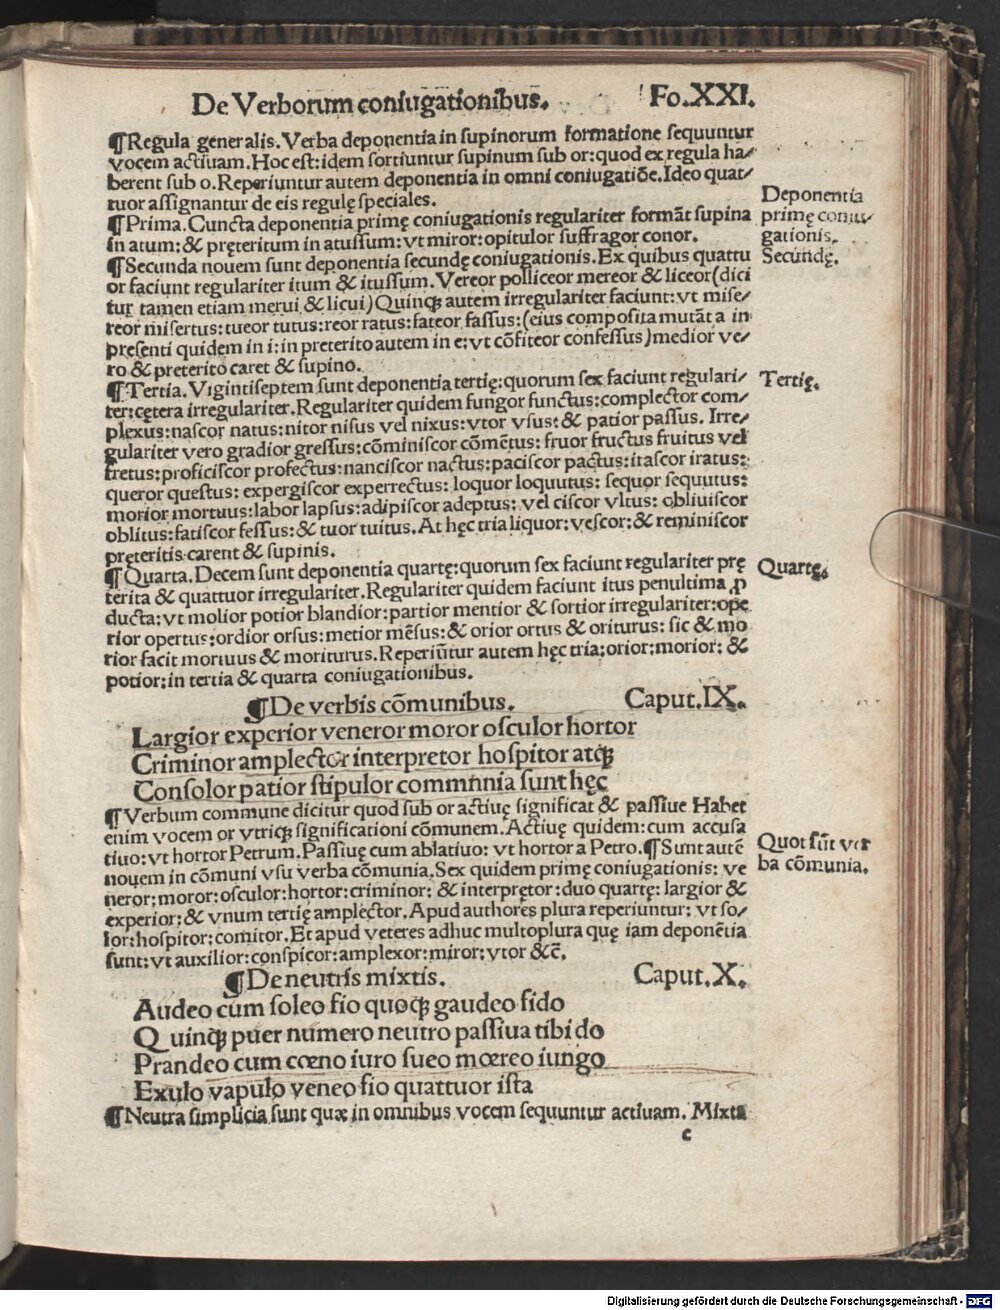 De Verborum coniugationibus. Fo.XXI.
¶Regula generalis. Verba deponentia in supinorum formatione sequuntur
vocem actiuam. Hoc est: idem sortiuntur supinum sub or: quod ex regula ha⸗
berent sub o. Reperiuntur autem deponentia in omni coniugatiōe. Ideo quat⸗
tuor assignantur de eis regulę speciales.
Deponentia
primę coniu⸗
gationis.
¶Prima. Cuncta deponentia primę coniugationis regulariter formāt supina
in atum: & pręteritum in atussum: vt miror: opitulor suffragor conor.
Secūdę.
¶Secunda nouem sunt deponentia secundę coniugationis. Ex quibus quattu
or faciunt regulariter itum & itussum. Vereor polliceor mereor & liceor (dici
tur tamen etiam merui & licui) Quinqꝫ autem irregulariter faciunt: vt mise⸗
reor misertus: tueor tutus: reor ratus: fateor fassus: (eius composita mutāt a in
presenti quidem in i: in preterito autem in e: vt cōfiteor confessus) medior ve⸗
ro & preterito caret & supino.
Tertię.
¶Tertia. Vigintiseptem sunt deponentia tertię: quorum sex faciunt regulari⸗
ter: cętera irregulariter. Regulariter quidem fungor functus: complector com⸗
plexus: nascor natus: nitor nisus vel nixus: vtor vsus: & patior passus. Irre⸗
gulariter vero gradior gressus: cōminiscor cōmētus: fruor fructus fruitus vel
fretus: proficiscor profectus: nanciscor nactus: paciscor pactus: irascor iratus:
queror questus: expergiscor experrectus: loquor loquutus: sequor sequutus:
morior mortuus: labor lapsus: adipiscor adeptus: vel ciscor vltus: obliuiscor
oblitus: fatiscor fessus: & tuor tuitus. At hęc tria liquor: vescor: & reminiscor
pręteritis carent & supinis.
Quartę.
¶Quarta. Decem sunt deponentia quartę: quorum sex faciunt regulariter prę
terita & quattuor irregulariter. Regulariter quidem faciunt itus penultima ꝓ
ducta: vt molior potior blandior: partior mentior & sortior irregulariter: ope
rior opertus: ordior orsus: metior mēsus: & orior ortus & oriturus: sic & mo
rior facit mortuus & moriturus. Reperiūtur autem hęc tria: orior: morior: &
potior: in tertia & quarta coniugationibus.
¶De verbis cōmunibus. Caput.IX.
Largior experior veneror moror osculor hortor
Criminor amplector interpretor hospitor atqꝫ
Consolor patior stipulor commnnia sunt hęc
¶Verbum commune dicitur quod sub or actiuę significat & passiue Habet
enim vocem or vtriqꝫ significationi cōmunem. Actiuę quidem: cum accusa
tiuo: vt hortor Petrum. Passiuę cum ablatiuo: vt hortor a Petro. ¶Sunt autē
Quot sūt ver
ba cōmunia.
nouem in cōmuni vsu verba cōmunia. Sex quidem primę coniugationis: ve
neror: moror: osculor: hortor: criminor: & interprętor: duo quartę: largior &
experior: & vnum tertię amplector. Apud authores plura reperiuntur: vt so⸗
lor: hospitor: comitor. Et apud veteres adhuc multoplura quę iam deponētia
sunt: vt auxilior: conspicor: amplexor: miror: vtor &c̄.
¶De neutris mixtis. Caput.X.
Audeo cum soleo fio quoqꝫ gaudeo fido
Quinqꝫ puer numero neutro passiua tibi do
Prandeo cum cœno iuro sueo mœreo iungo
Exulo vapulo veneo fio quattuor ista
¶Neutra simplicia sunt quæ in omnibus vocem sequuntur actiuam. Mixta
c
Digitalisierung gefördert durch die Deutsche Forschungsgemeinschaft - DFG